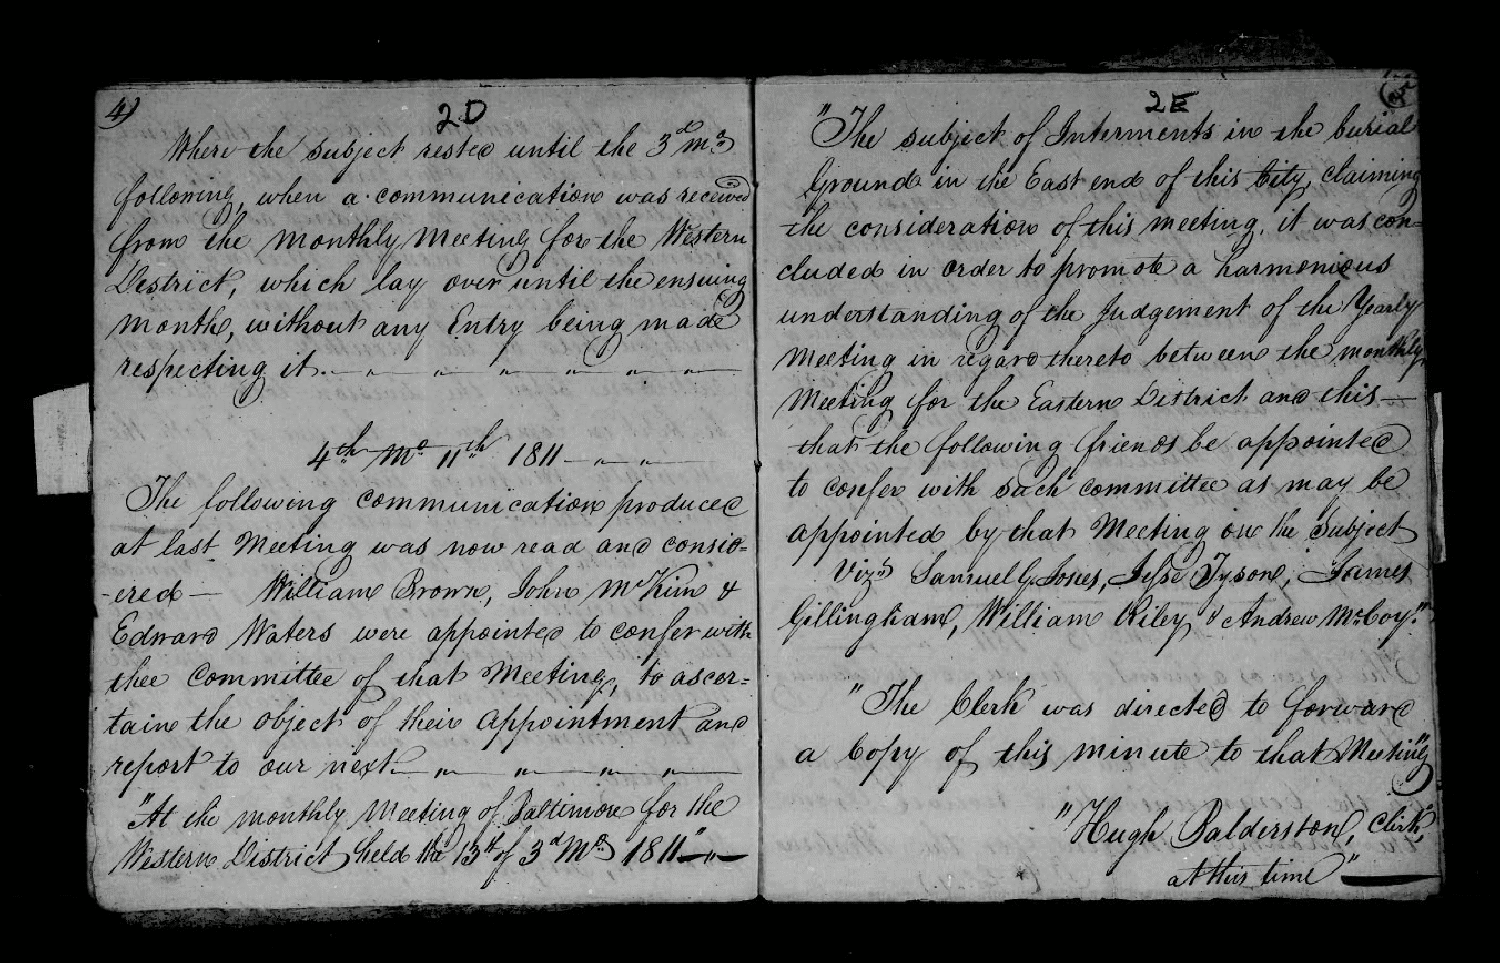 4)
2D
Where the subject rested until the 3d mo
following, when a communication was received
from the Monthly Meeting for the Western
District, which lay over until the ensuing
month, without any Entry being made
respecting it. — " — " — " — " — " —
4th Mo 11th 1811 — " — " —
The following communication produced
at last Meeting was now read and consid=
-ered — William Brown, John McKim &
Edward Waters were appointed to confer with
thee Committee of that Meeting, to ascer=
tain the object of their appointment and
report to our next. — " — " — " — " —
"At the monthly Meeting of Baltimore for the
Western District held the 13th of 3d Mo 1811 — " —
5
2E
"The subject of Interments in the burial
Ground in the East end of this City, claiming
the consideration of this meeting, it was con=
cluded in order to promote a harmonious
understanding of the Judgement of the Yearly
Meeting in regard thereto between the monthly
Meeting for the Eastern District and this —
that the following friends be appointed
to confer with such committee as may be
appointed by that Meeting on the Subject
Vizt Samuel G. Jones, Jesse Tyson, James
Gillingham, William Riley & Andrew McCoy."
"The Clerk was directed to forward
a Copy of this minute to that Meeting"
"Hugh Balderston, Clerk,
at this time" —